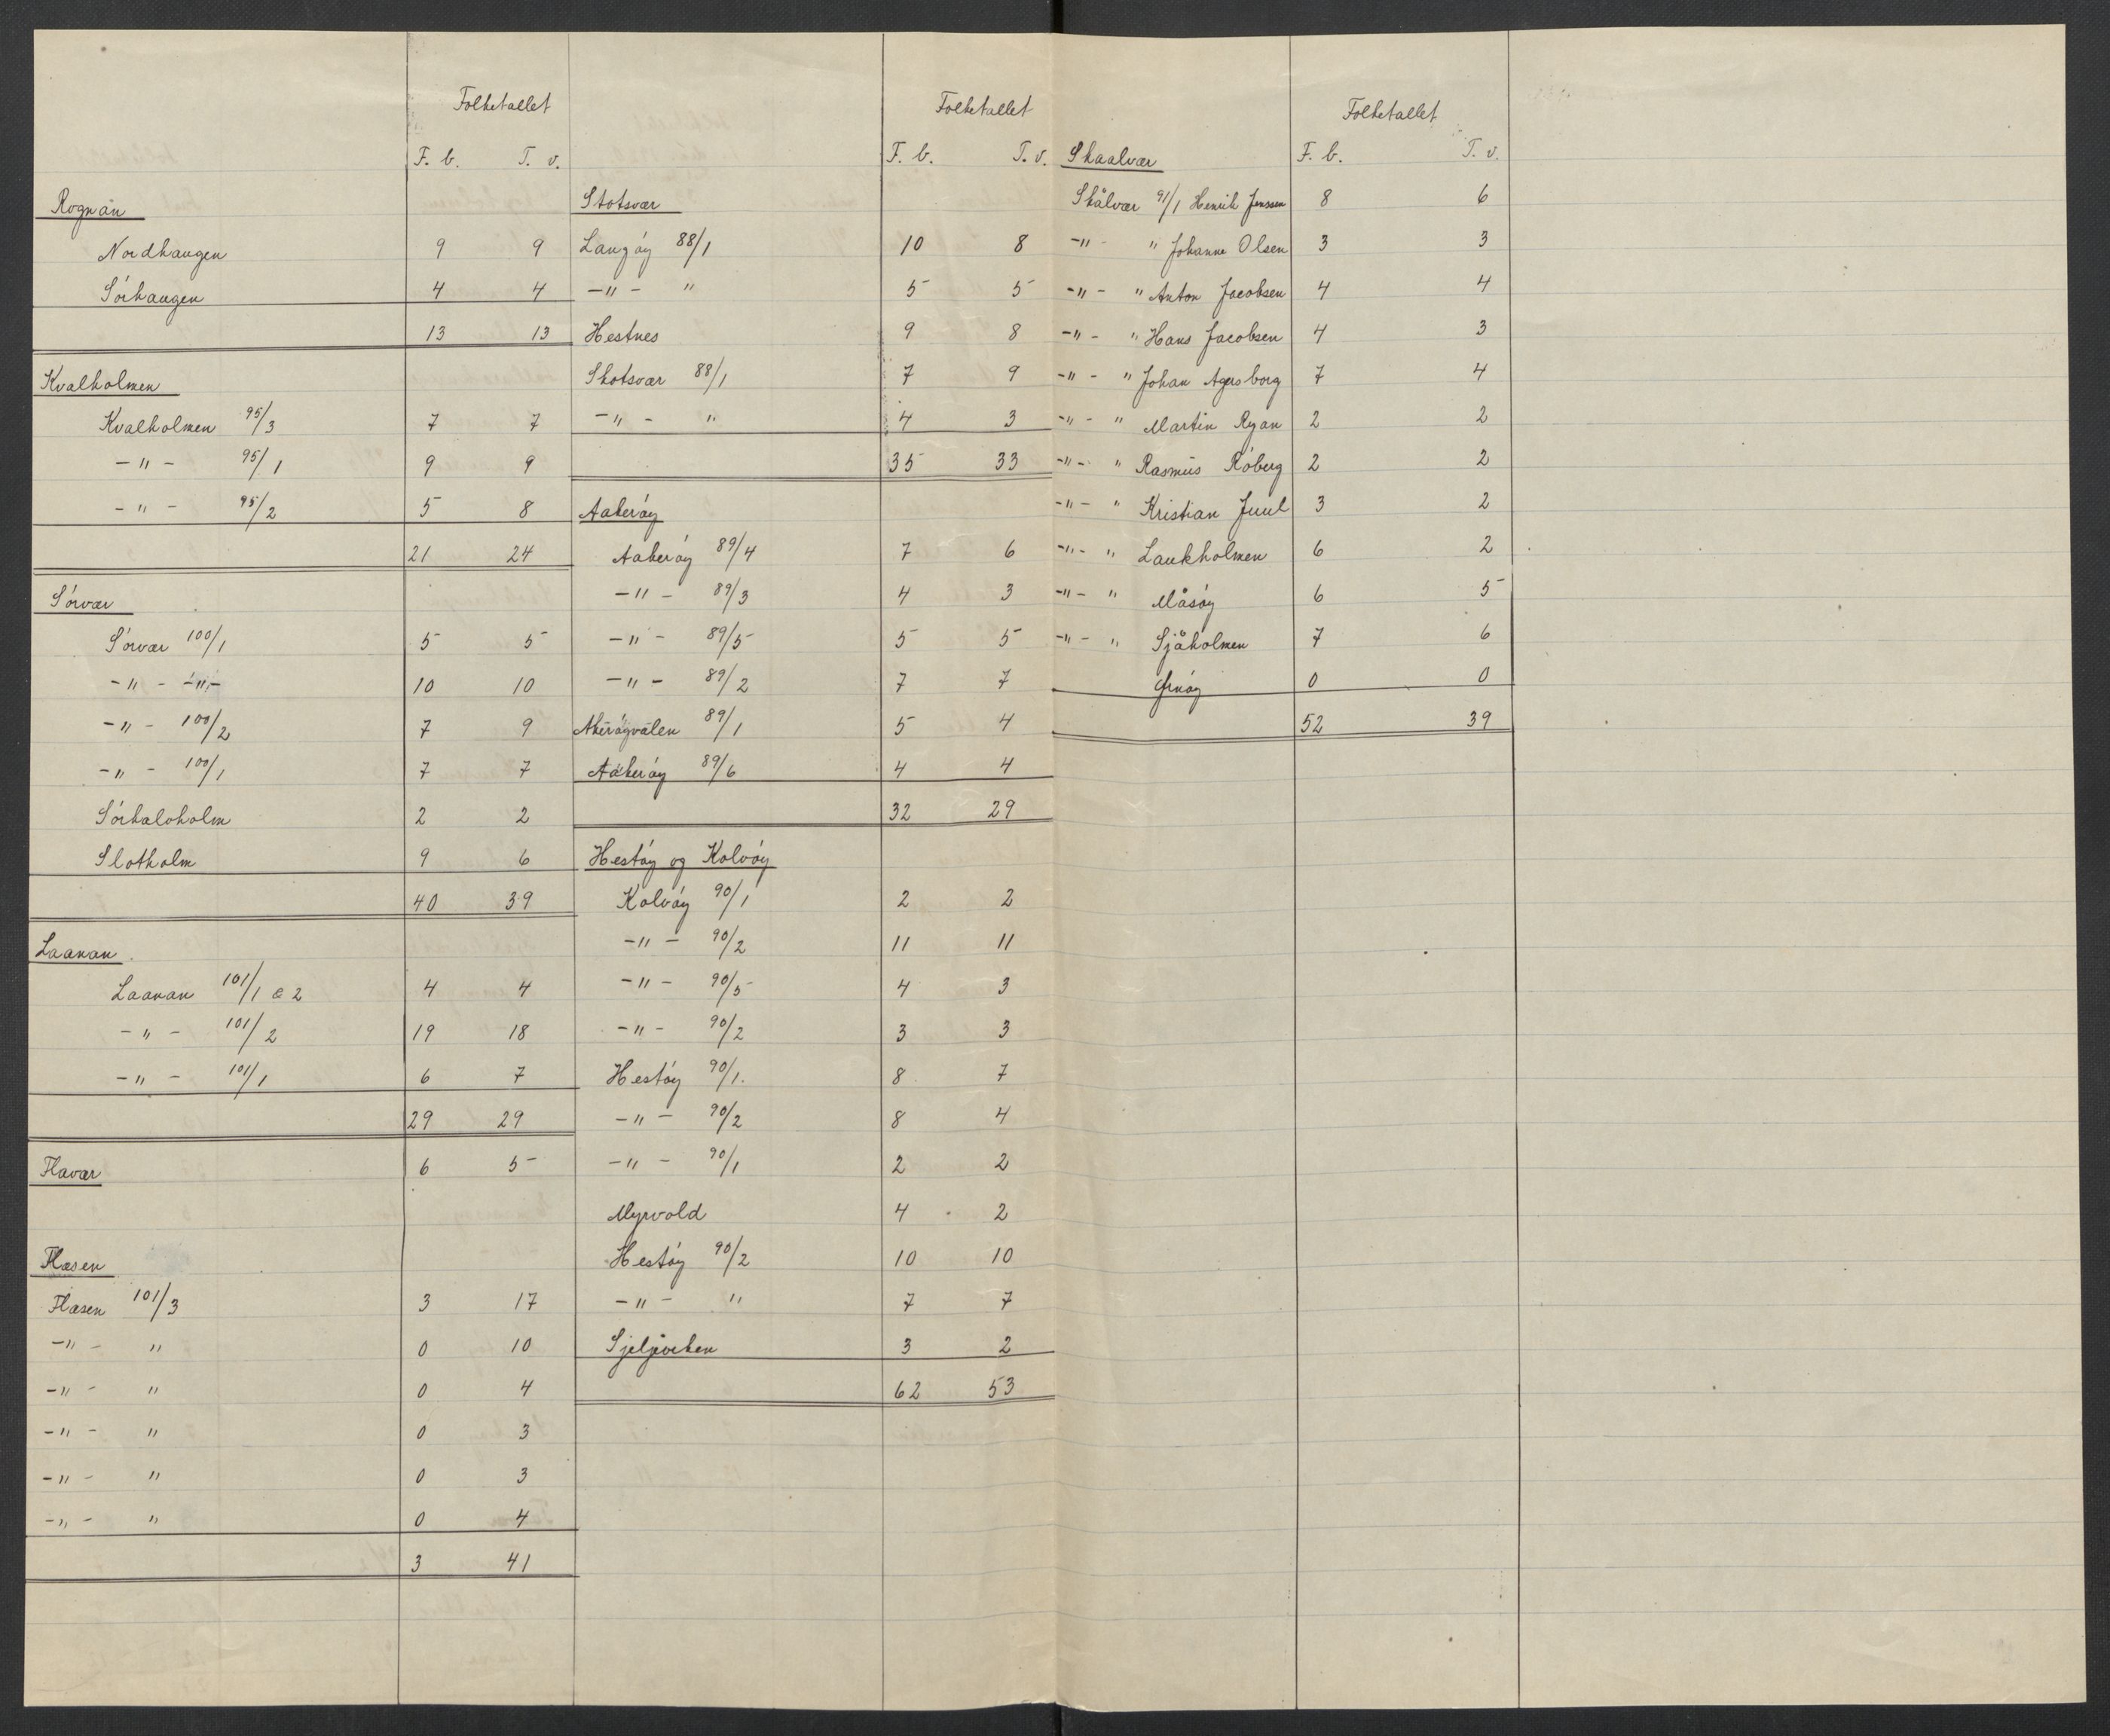 Folketallet
F. b. T. v.
Rognan
Nordhaugen 9 9
Sórhaugen 4 4
13 13
Kvalholmen
Kvalholmen 95/3 7 7
-"- 95/1 9 9
-"- 95/2 5 8
21 24
Sórvær
Sórvær 100/1 5 5
-"- -"- 10 10
-"- 100/2 7 9
-"- 100/1 7 7
Sórhalvholm 2 2
Slotholm 9 6
40 39
Laanan
Laanan 101/1 & 2 4 4
-"- 101/2 19 18
-"- 101/1 6 7
29 29
Flavær 6 5
Flæsen
Flæsen 101/3 3 17
-"- " 0 10
-"- " 0 4
-"- " 0 3
-"- " 0 3
-"- " 0 4
3 41
Folketallet
F. b. T. v.
Stotsvær
Langóy 88/1 10 8
-"- " 5 5
Hestnes 9 8
Skotsvær 88/1 7 9
-"- " 4 3
35 33
Aakeróy
Aakeróy 89/4 7 6
-"- 89/3 4 3
-"- 89/5 5 5
-"- 89/2 7 7
Akeróyvalen 89/1 5 4
Aakeróy 89/6 4 4
32 29
Hestóy og Kalvóy
Kalvóy 90/1 2 2
-"- 90/2 11 11
-"- 90/5 4 3
-"- 90/2 3 3
Hestóy 90/1. 8 7
-"- 90/2 8 4
-"- 90/1 2 2
Myrvold 4 2
Hestóy 90/2 10 10
-"- " 7 7
3 2
62 53
Folketallet
F. b. T. v.
Skaalvær
Skålvær 91/1 Henrik Jenssen 8 6
-"- " Johanne Olsen 3 3
-"- " Anton Jacobsen 4 4
-"- " Hans Jacobsen 4 3
-"- " Johan Agersborg 7 4
-"- " Martin Ryan 2 2
-"- " Rasmus Róberg 2 2
-"- " Kristian Juul 3 2
-"- " Laukholmen 6 2
-"- " Måsóy 6 5
-"- " Sjåholmen 7 6
0 0
52 39